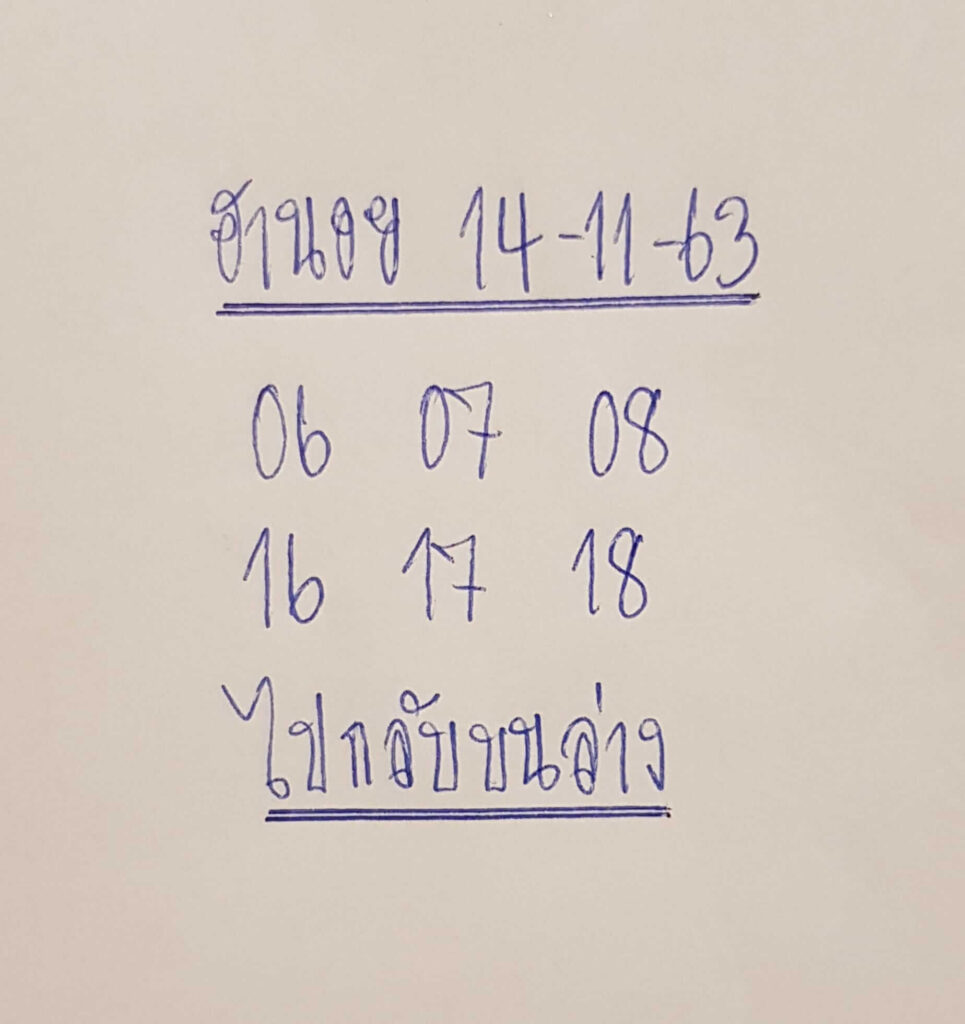 ฮานอย 14-11-63
06 07 08
16 17 18
ไปกลับบนล่าง